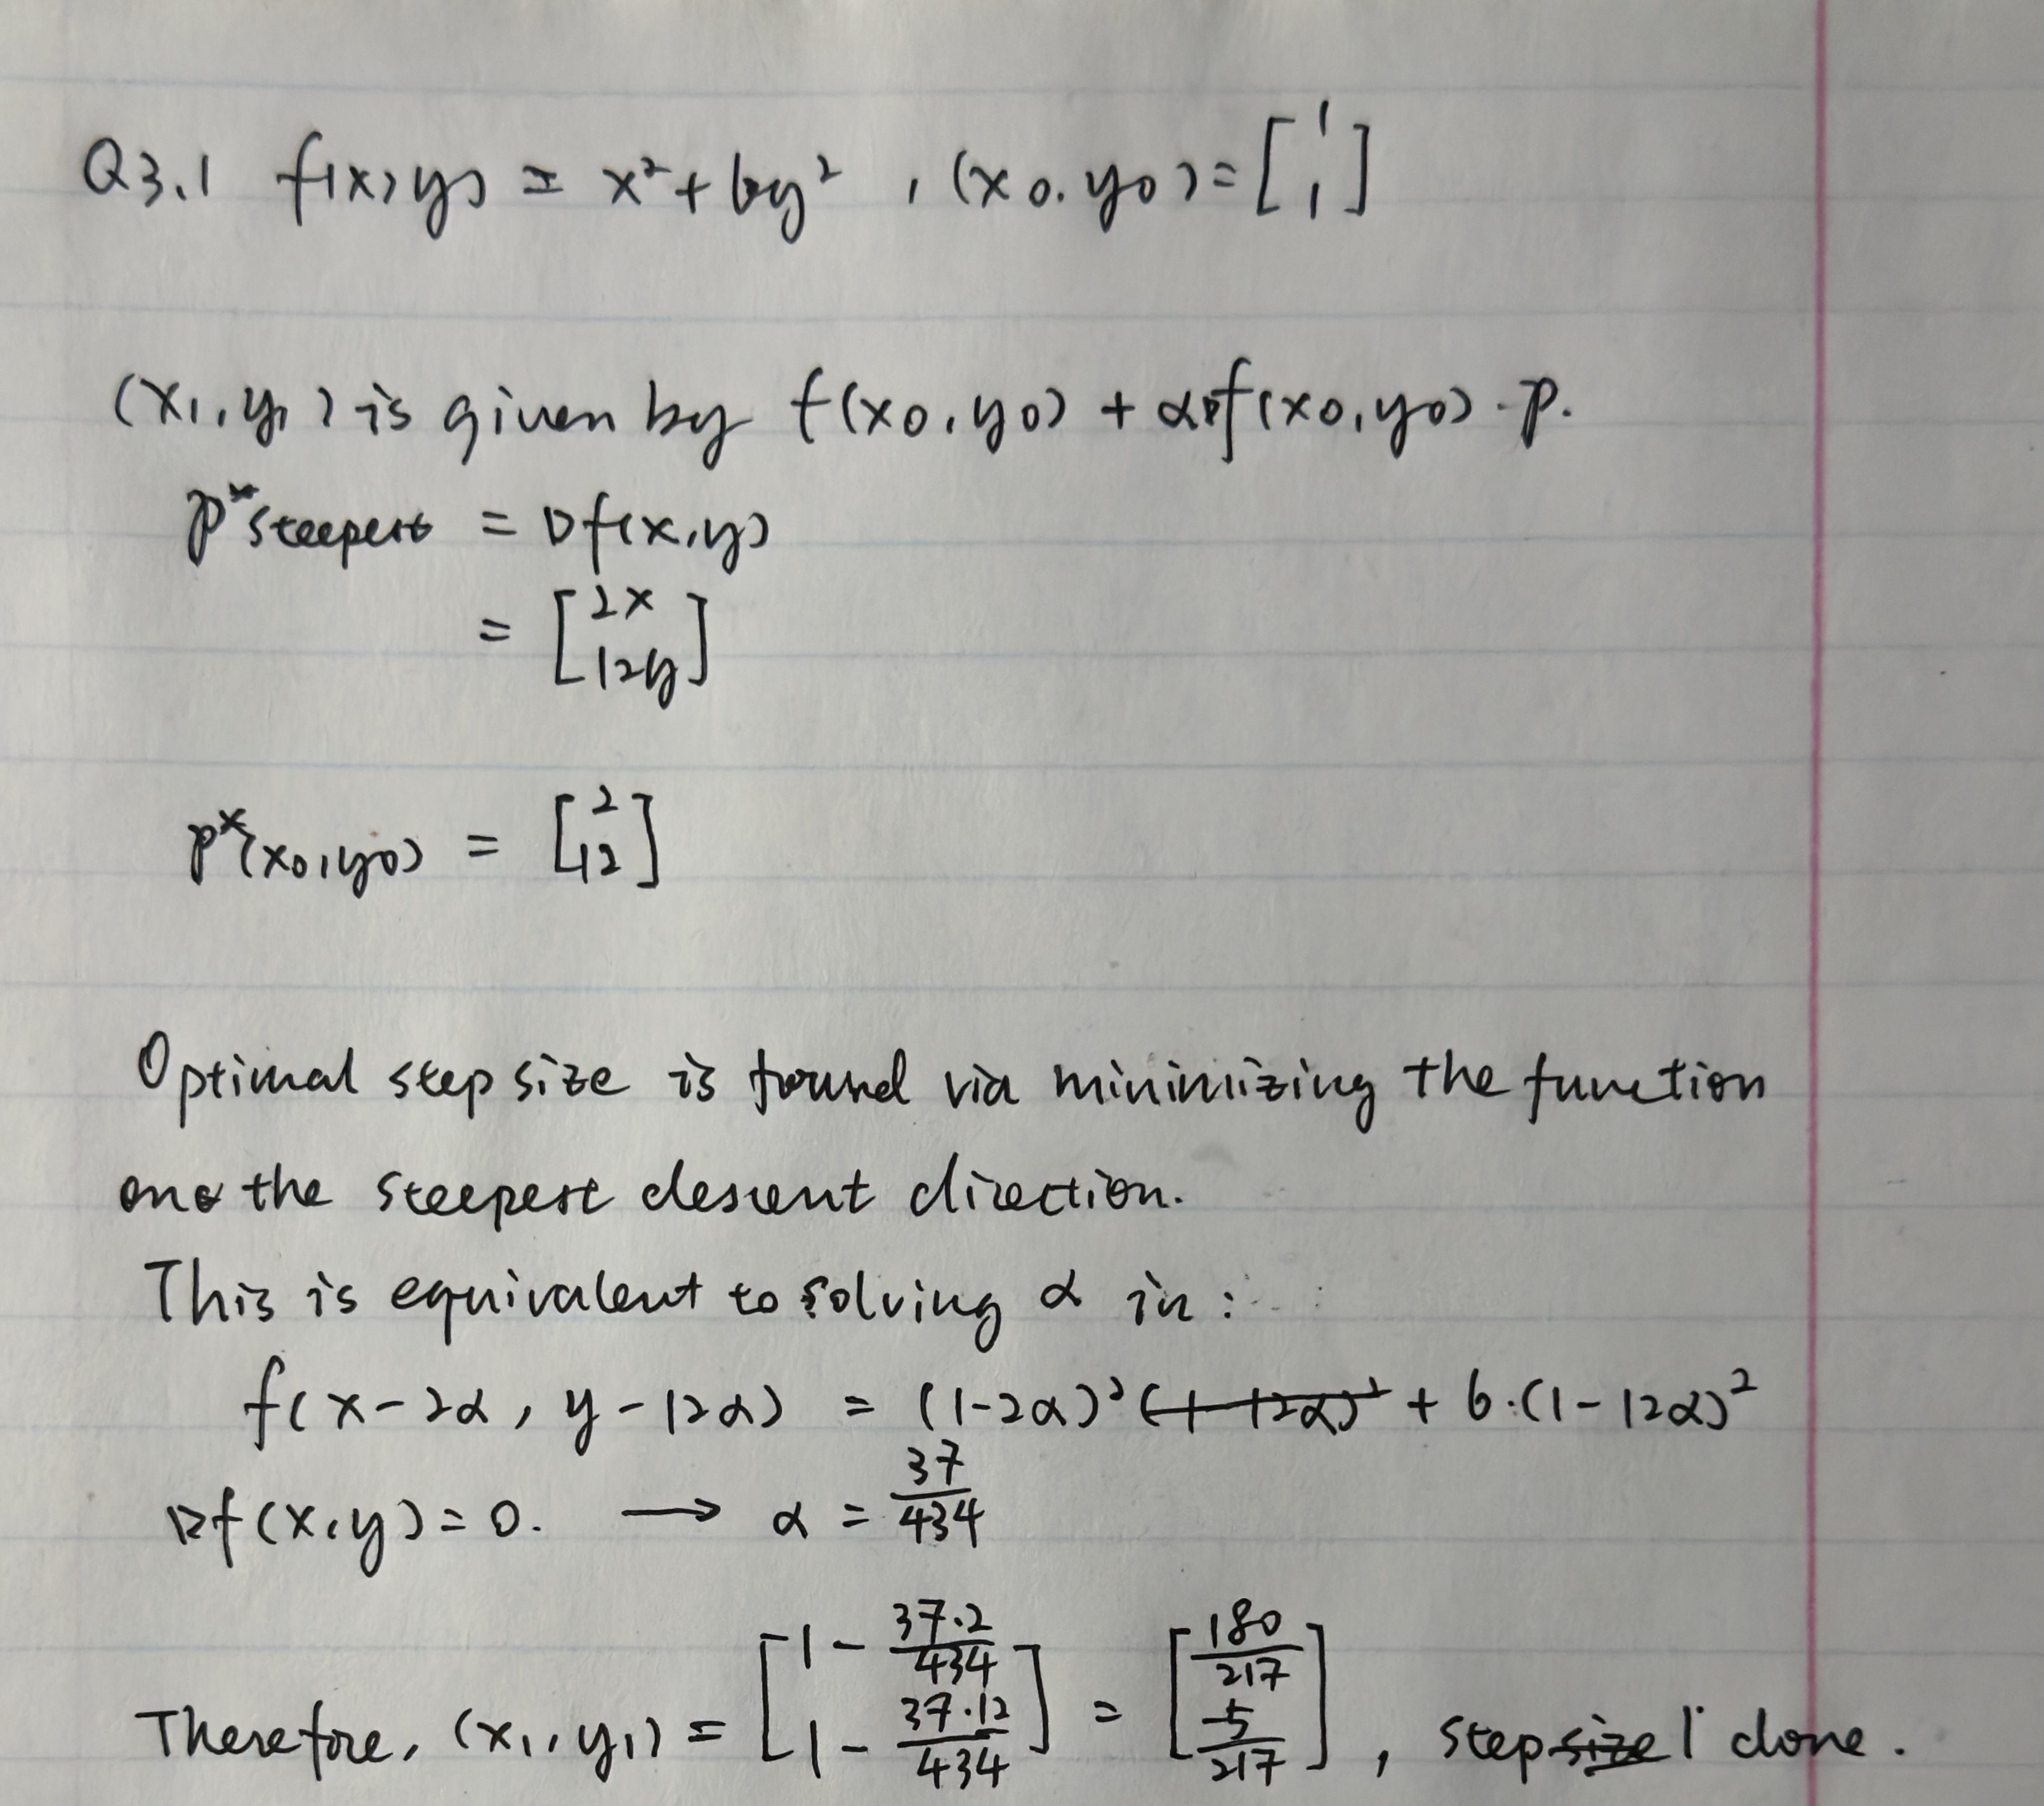 Q3.1 f(x,y) = x² + 6y² , (x0.y0) = [1 1]
(x₁,y₁) is given by f(x0,y0) + α∇f(x0,y0)·p.
p*steepest = ∇f(x,y)
= [2x 12y]
p*(x0,y0) = [2 12]
Optimal step size is found via minimizing the function
one the steepest descent direction.
This is equivalent to solving α in:
f(x-2α, y-12α) = (1-2α)² ~~(1-12α)²~~ + 6·(1-12α)²
∇f(x,y)=0. → α = 37/434
Therefore, (x₁,y₁) = [1 - 37·2/434 1 - 37·12/434] = [180/217 -5/217], step ~~size~~ 1 done.